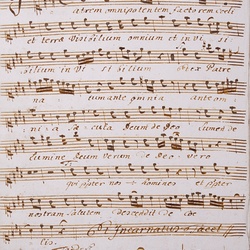 atrem omnipotentem factorem coeli
et terra Visibilium omnium et in vi si
bilium in Vi si bilium Ex Patre
na tum ante omnia ante om
ni a sae cula Deum de Deo lumen de
lumine Deum verum de Deo vero
qui propter nos homines et propter
nostram salutem descendit de Coe
lis. Et Incarnatus tacet